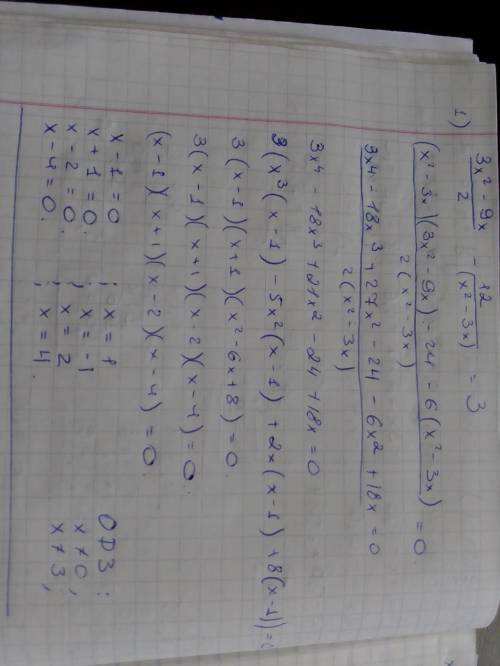 1) (3x² - 9x)/2 - 12/(x² - 3x) = 3
((x² - 3x)(3x² - 9x) - 24 - 6(x² - 3x))/(2(x² - 3x)) = 0
(3x⁴ - 18x³ + 27x² - 24 - 6x² + 18x)/(2(x² - 3x)) = 0
3x⁴ - 18x³ + 21x² - 24 + 18x = 0
3(x³(x - 1) - 5x²(x - 1) + 2x(x - 1) + 8(x - 1)) = 0
3(x - 1)(x + 1)(x² - 6x + 8) = 0.
3(x - 1)(x + 1)(x - 2)(x - 4) = 0.
(x - 1)(x + 1)(x - 2)(x - 4) = 0.
x - 1 = 0 ; x = 1
x + 1 = 0. ; x = -1
x - 2 = 0. ; x = 2
x - 4 = 0. ; x = 4.
ОДЗ:
x ≠ 0;
x ≠ 3;